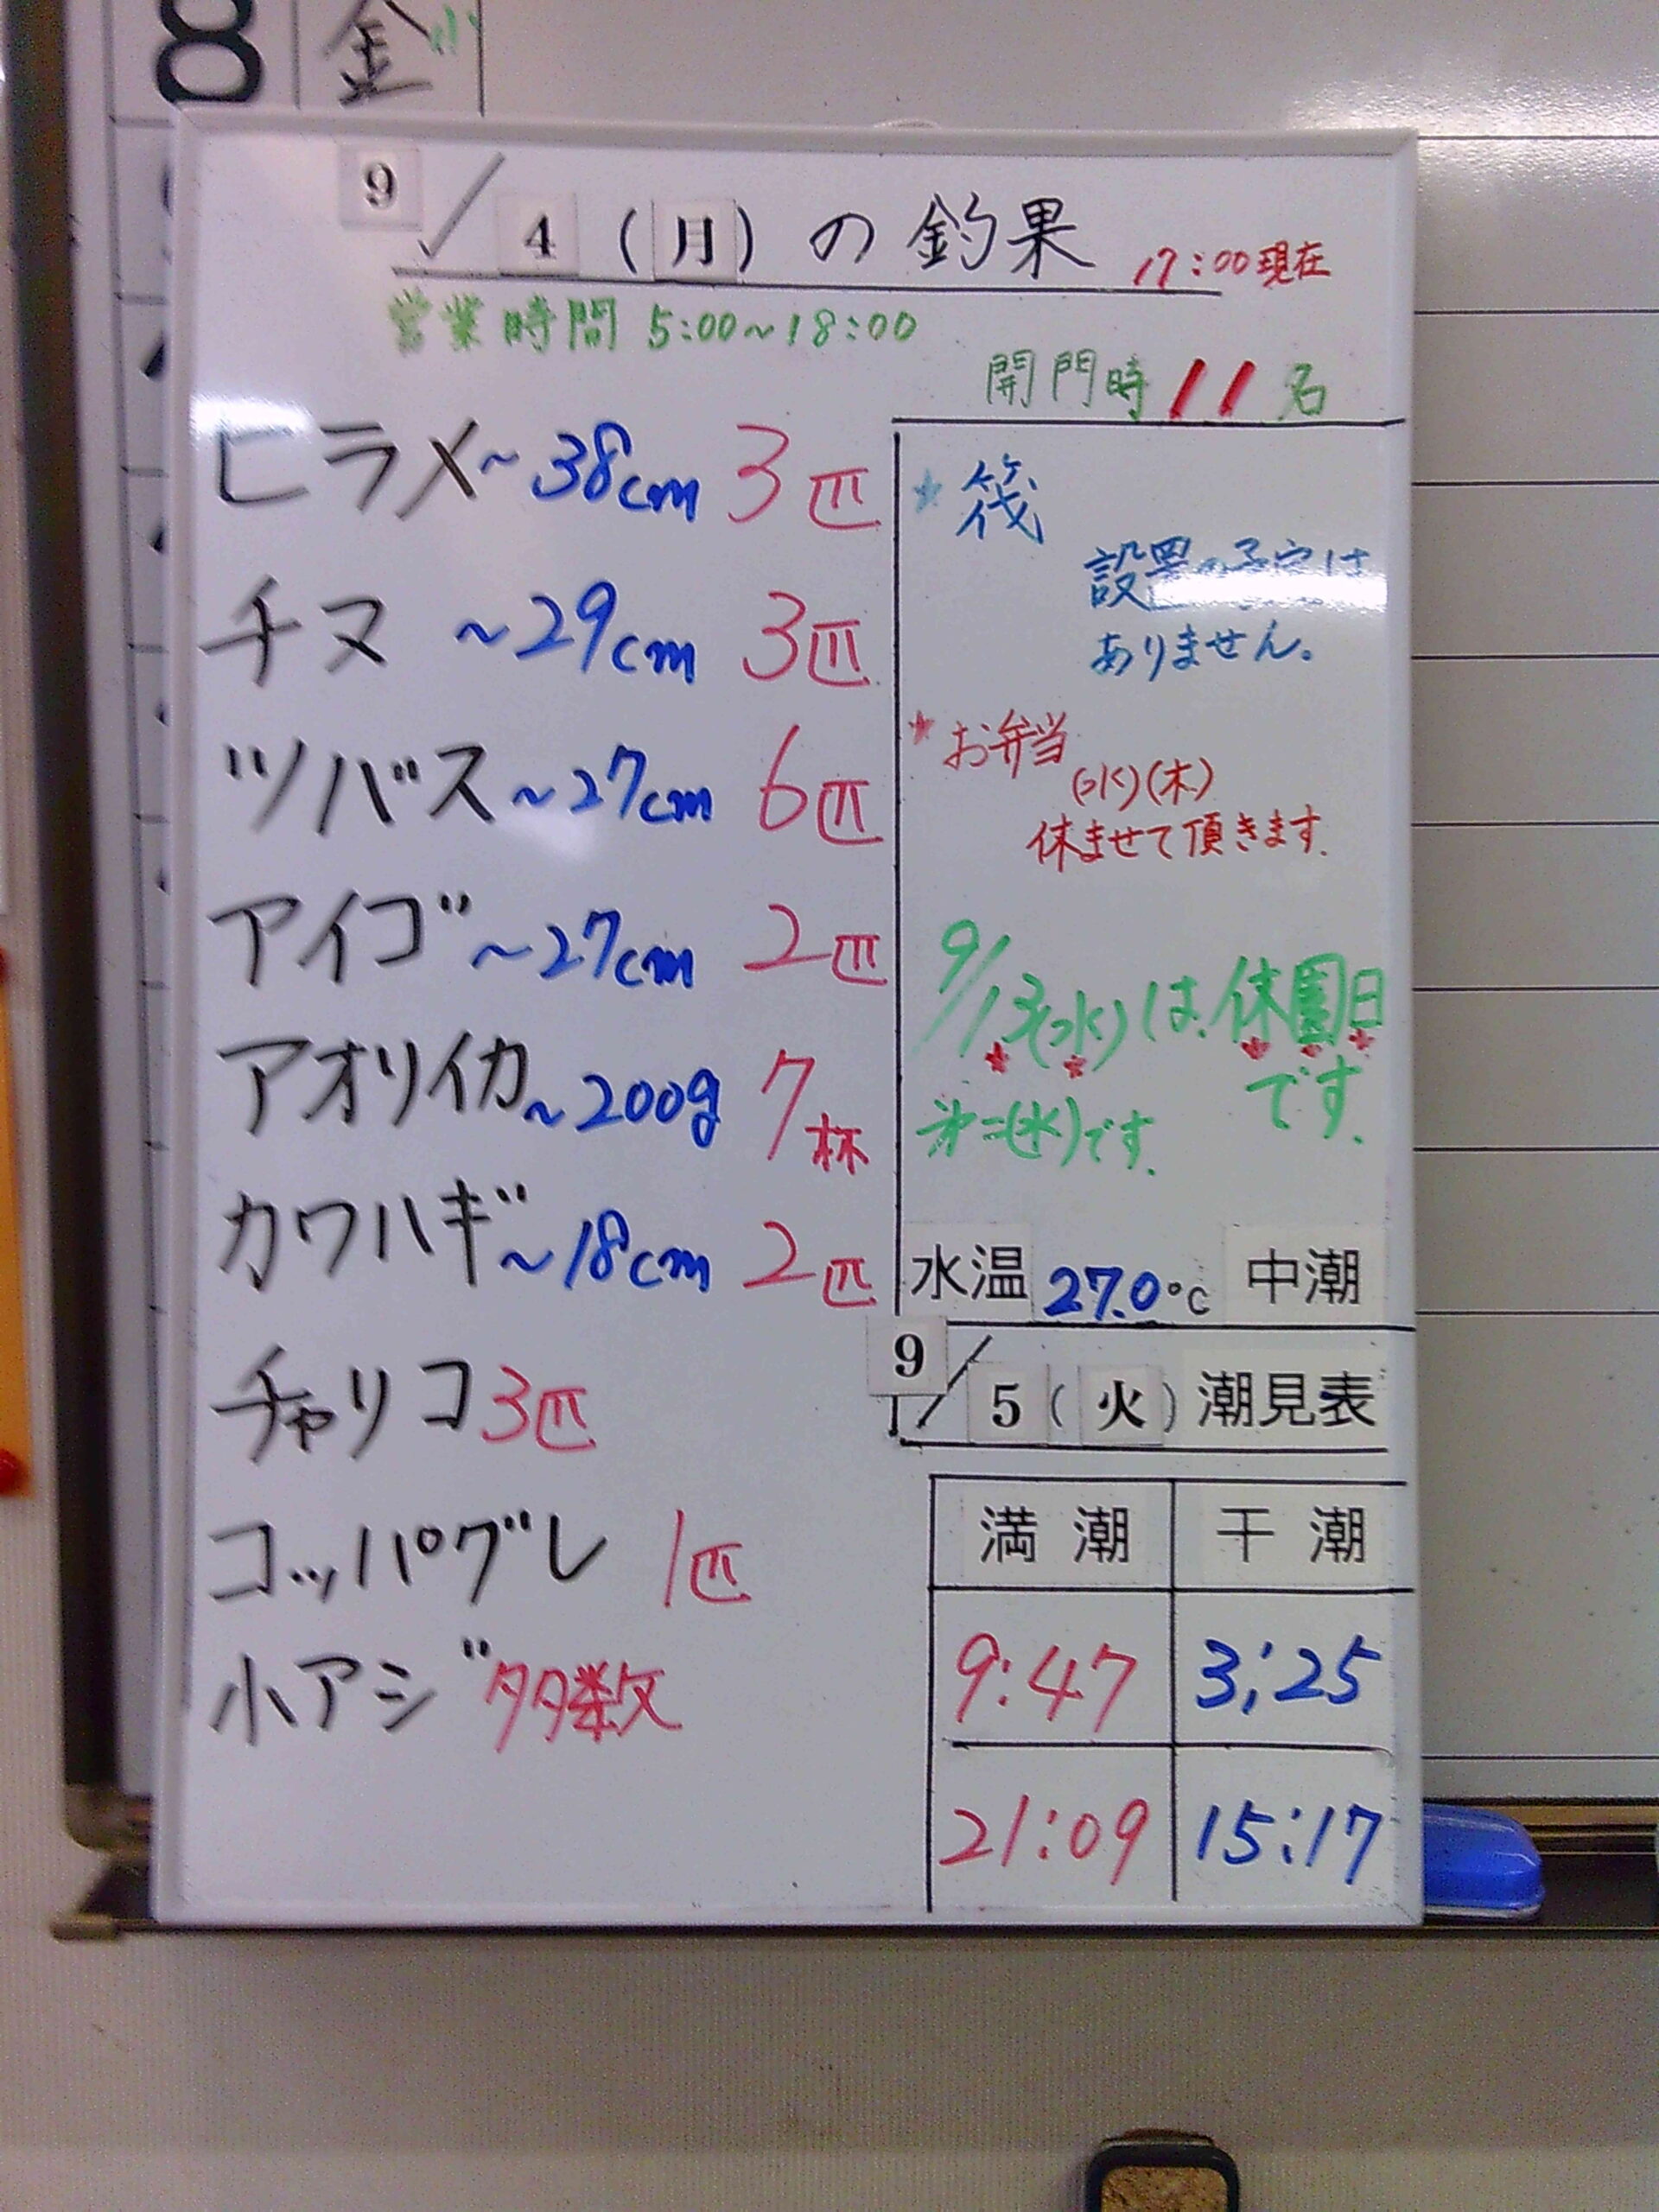 8 金 小
9/4(月)の釣果 17:00現在
営業時間 5:00~18:00
開門時 11 名
ヒラメ~38cm 3匹
チヌ ~29cm 3匹
ツバス~27cm 6匹
アイゴ~27cm 2匹
アオリイカ~200g 7杯
カワハギ~18cm 2匹
チャリコ 3匹
コッパグレ 1匹
小アジ 多数
★筏
設置の予定は
ありません。
★お弁当
(水)(木)
休ませて頂きます.
9/13(水)は、休園日
です.
第二(水)です.
水温 27.0℃ 中潮
9/5(火)潮見表
満潮 干潮
9:47 3:25
21:09 15:17